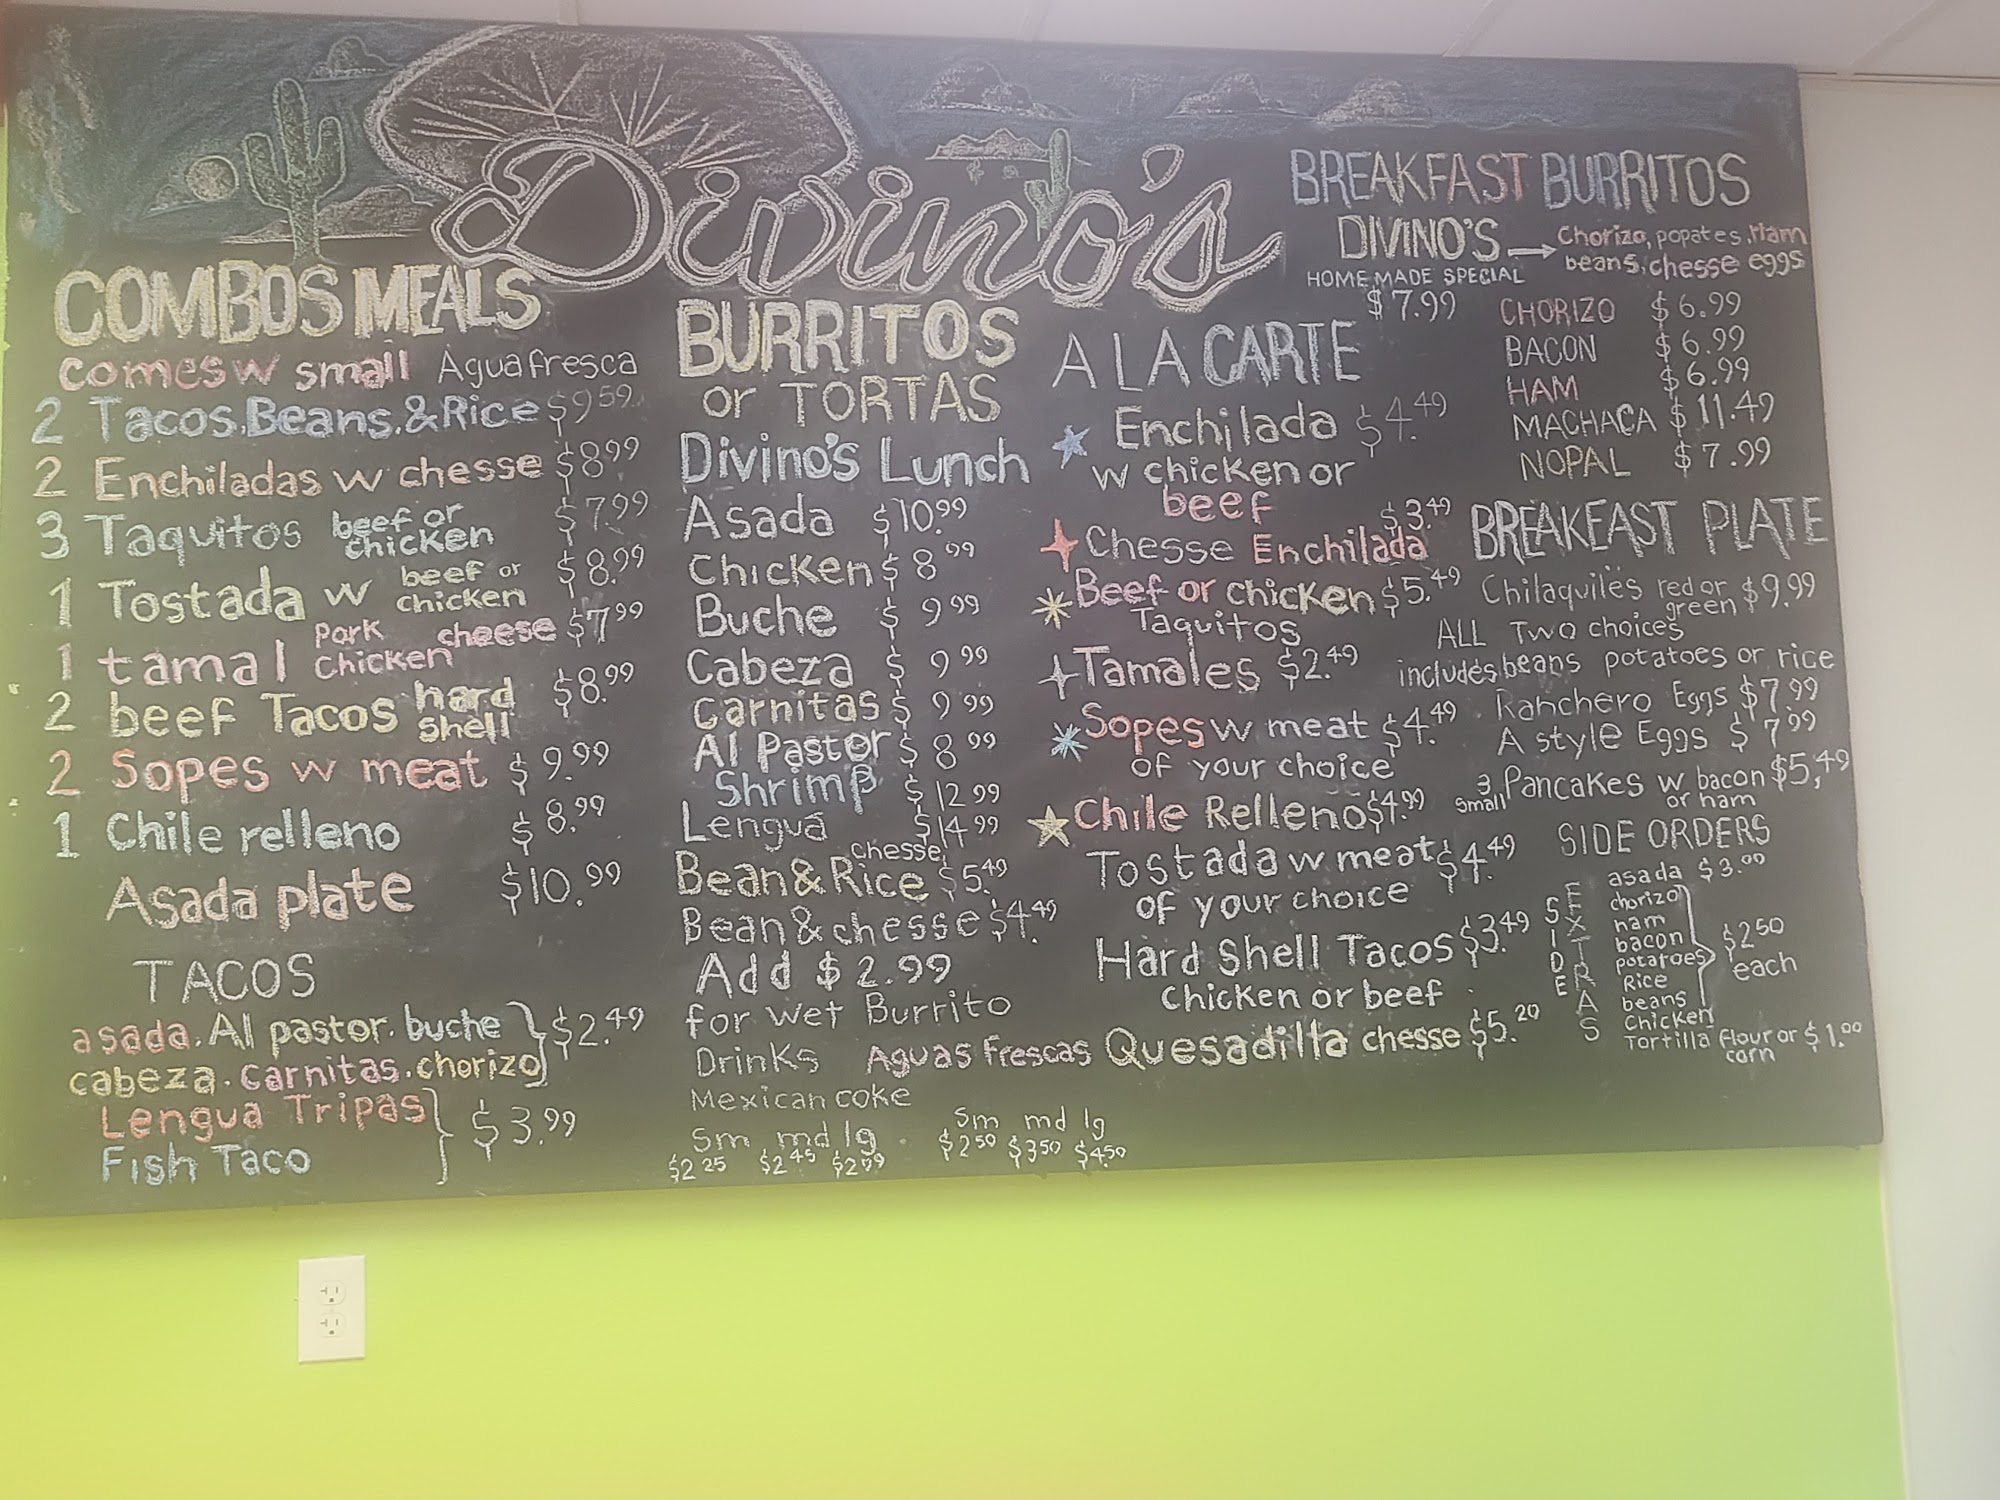 Divino's
COMBOS MEALS
comes w small Agua fresca
2 Tacos, Beans, & Rice $9.59
2 Enchiladas w chesse $8.99
3 Taquitos beef or chicken $7.99
1 Tostada w beef or chicken $8.99
1 tamal Pork Chicken cheese $7.99
2 beef Tacos hard shell $8.99
2 Sopes w meat $9.99
1 Chile relleno $8.99
Asada plate $10.99
TACOS
asada. Al pastor. buche
cabeza. carnitas. chorizo } $2.49
Lengua Tripas
Fish Taco } $3.99
BURRITOS
or TORTAS
Divino's Lunch
Asada $10.99
Chicken $8.99
Buche $9.99
Cabeza $9.99
Carnitas $9.99
Al Pastor $8.99
Shrimp $12.99
Lengua $14.99
Bean & Rice chesse $5.49
Bean & chesse $4.49
Add $2.99
for wet Burrito
Drinks Aguas frescas
Mexican coke
Sm md lg
$2.25 $2.45
Sm md lg
$2.50 $3.50 $4.50
A LA CARTE
Enchilada $4.49
w chicken or
beef
Chesse Enchilada $3.49
Beef or chicken $5.49
Taquitos
Tamales $2.49
Sopes w meat $4.49
of your choice
Chile Relleno $4.99
Tostada w meat $4.49
of your choice
Hard Shell Tacos $3.49
chicken or beef
Quesadilla chesse $5.20
BREAKFAST BURRITOS
DIVINO'S → Chorizo, popates, Ham
HOME MADE SPECIAL beans, chesse eggs
$7.99
CHORIZO $6.99
BACON $6.99
HAM $6.99
MACHACA $11.49
NOPAL $7.99
BREAKFAST PLATE
Chilaquiles red or green $9.99
ALL TWO choices
includes beans potatoes or rice
Ranchero Eggs $7.99
A style Eggs $7.99
3 small Pancakes w bacon or ham $5,49
SIDE ORDERS
SIDE EXTRAS
asada $3.00
chorizo
ham
bacon
potatoes
Rice
beans
Chicken
$2.50
each
Tortilla flour or corn $1.00